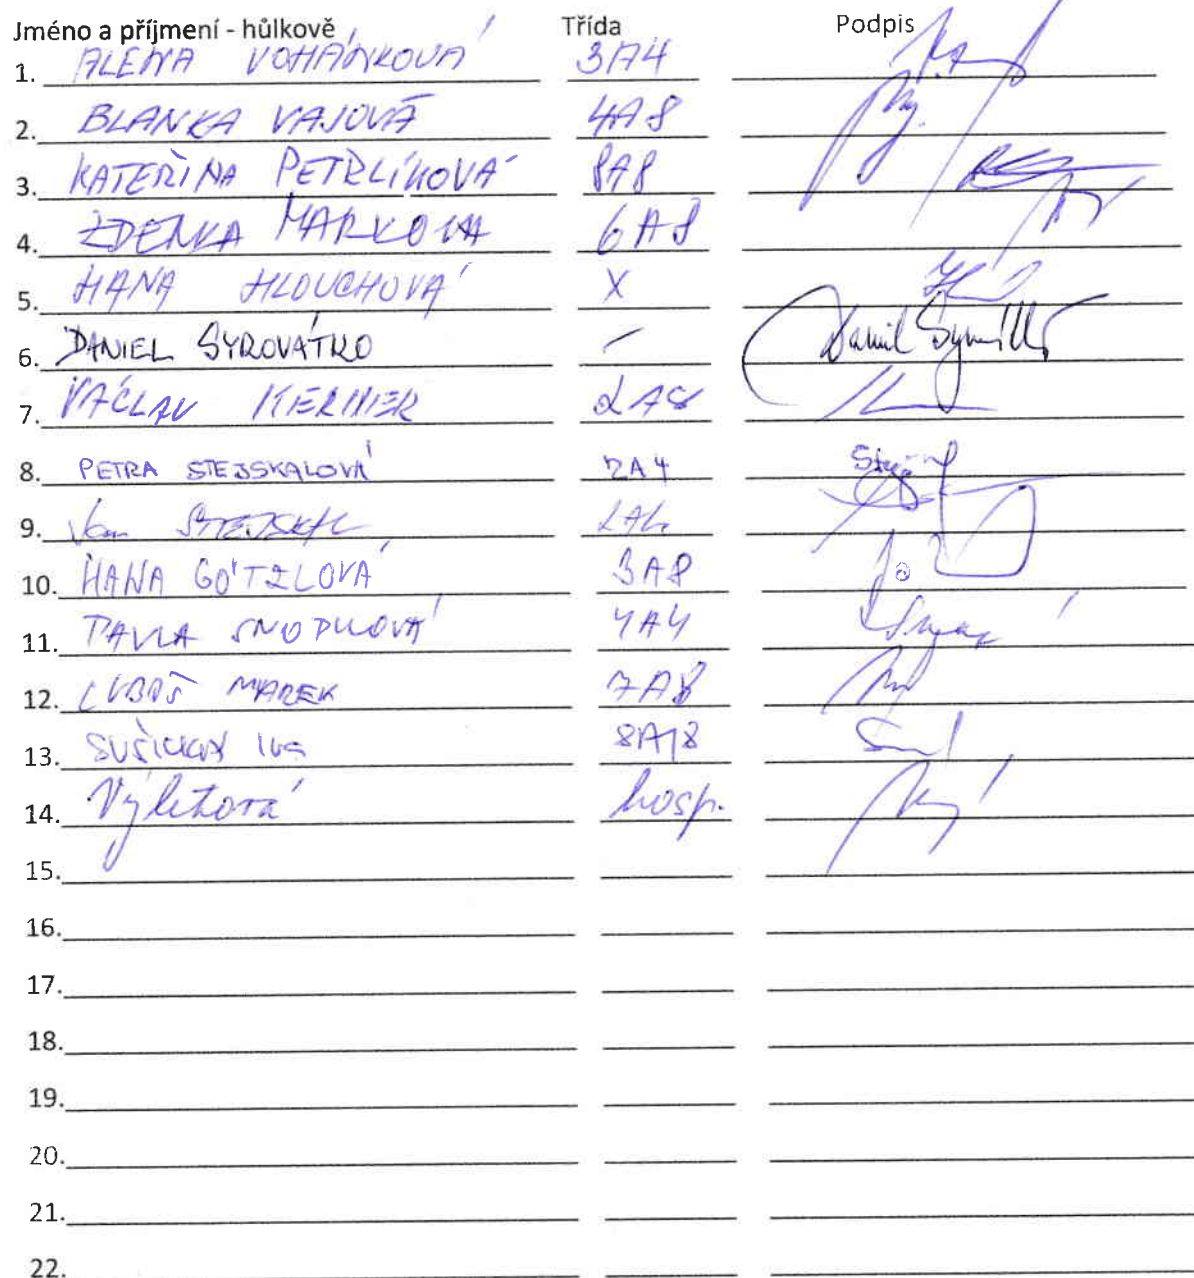 Jméno a příjmení - hůlkově Třída Podpis
1. ALENA VOHÁNKOVÁ 3A4
2. BLANKA VAJOVÁ 4A8
3. KATEŘINA PETRLÍKOVÁ 8A8
4. ZDEŇKA MARKOVÁ 6A8
5. HANA HLOUCHOVÁ X
6. DANIEL SYROVÁTKO -
7. VÁCLAV KERNER 2A8
8. PETRA STEJSKALOVÁ 2A4
9. STEJSKAL
10. HANA GÖTZLOVÁ 3A8
11. PAVLA 4A4
12. LUBOŠ MAREK 7A8
13. SUŠICKÁ Iva 8A8
14. Výletová hosp.
15.
16.
17.
18.
19.
20.
21.
22.